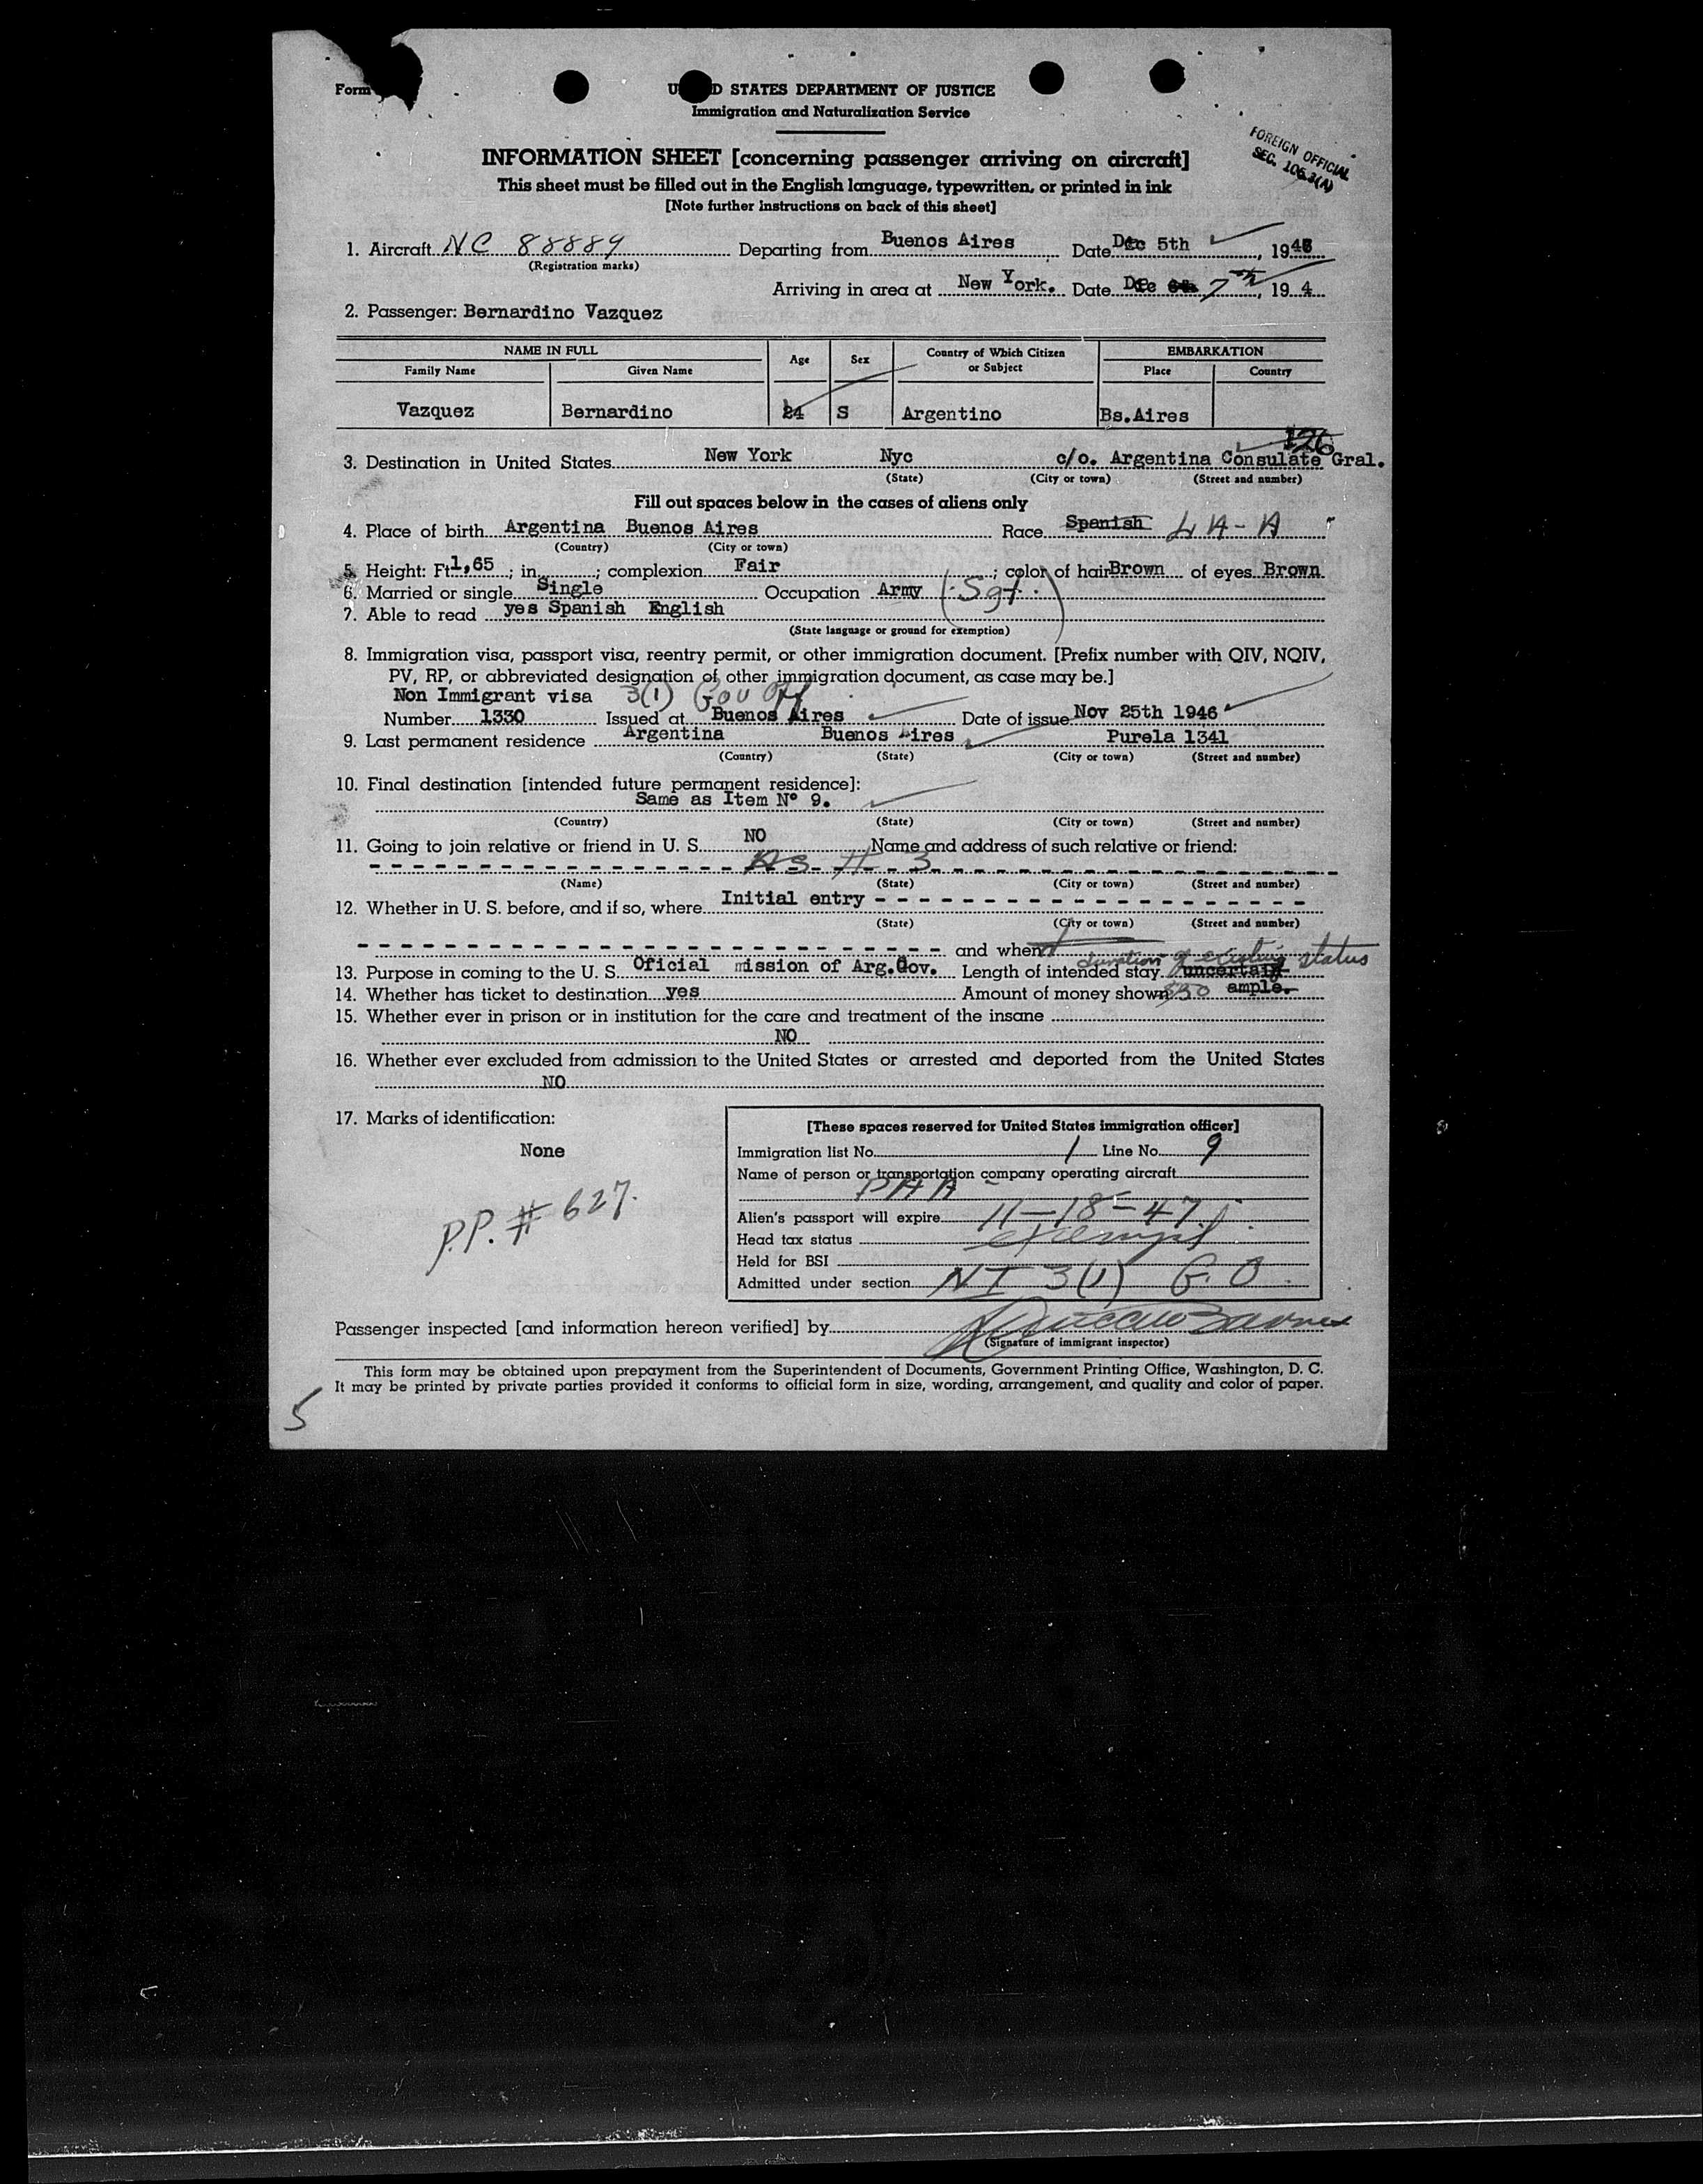 Form
UNITED STATES DEPARTMENT OF JUSTICE
Immigration and Naturalization Service
FOREIGN OFFICIAL
SEC. 106.3(A)
INFORMATION SHEET [concerning passenger arriving on aircraft]
This sheet must be filled out in the English language, typewritten, or printed in ink
[Note further instructions on back of this sheet]
1. Aircraft NC 88889 Departing from Buenos Aires Date Dec 5th, 1946
(Registration marks)
Arriving in area at New York. Date Dec 7th, 194
2. Passenger: Bernardino Vazquez
NAME IN FULL Age Sex Country of Which Citizen or Subject EMBARKATION
Family Name Given Name Place Country
Vazquez Bernardino 24 S Argentino Bs.Aires
126
3. Destination in United States New York Nyc c/o. Argentina Consulate Gral.
(State) (City or town) (Street and number)
Fill out spaces below in the cases of aliens only
4. Place of birth Argentina Buenos Aires Race Spanish LA-A
(Country) (City or town)
5. Height: Ft 1,65; in ; complexion Fair; color of hair Brown of eyes Brown
6. Married or single Single Occupation Army (Sgt.)
7. Able to read yes Spanish English
(State language or ground for exemption)
8. Immigration visa, passport visa, reentry permit, or other immigration document. [Prefix number with QIV, NQIV,
PV, RP, or abbreviated designation of other immigration document, as case may be.]
Non Immigrant visa 3(1) Gov Off
Number 1330 Issued at Buenos Aires Date of issue Nov 25th 1946
9. Last permanent residence Argentina Buenos Aires Purela 1341
(Country) (State) (City or town) (Street and number)
10. Final destination [intended future permanent residence]:
Same as Item Nº 9.
(Country) (State) (City or town) (Street and number)
11. Going to join relative or friend in U. S. NO Name and address of such relative or friend:
As # 3
(Name) (State) (City or town) (Street and number)
12. Whether in U. S. before, and if so, where Initial entry
(State) (City or town) (Street and number)
and when
duration of existing status
13. Purpose in coming to the U. S. Oficial mission of Arg.Gov. Length of intended stay uncertain
14. Whether has ticket to destination yes Amount of money shown $50 ample.
15. Whether ever in prison or in institution for the care and treatment of the insane
NO
16. Whether ever excluded from admission to the United States or arrested and deported from the United States
NO
17. Marks of identification:
None
P.P. # 627.
[These spaces reserved for United States immigration officer]
Immigration list No. 1 Line No. 9
Name of person or transportation company operating aircraft
PAA
Alien's passport will expire 11-18-47
Head tax status exempt
Held for BSI
Admitted under section NI 3(1) G.O.
Passenger inspected [and information hereon verified] by
(Signature of immigrant inspector)
This form may be obtained upon prepayment from the Superintendent of Documents, Government Printing Office, Washington, D. C.
It may be printed by private parties provided it conforms to official form in size, wording, arrangement, and quality and color of paper.
5